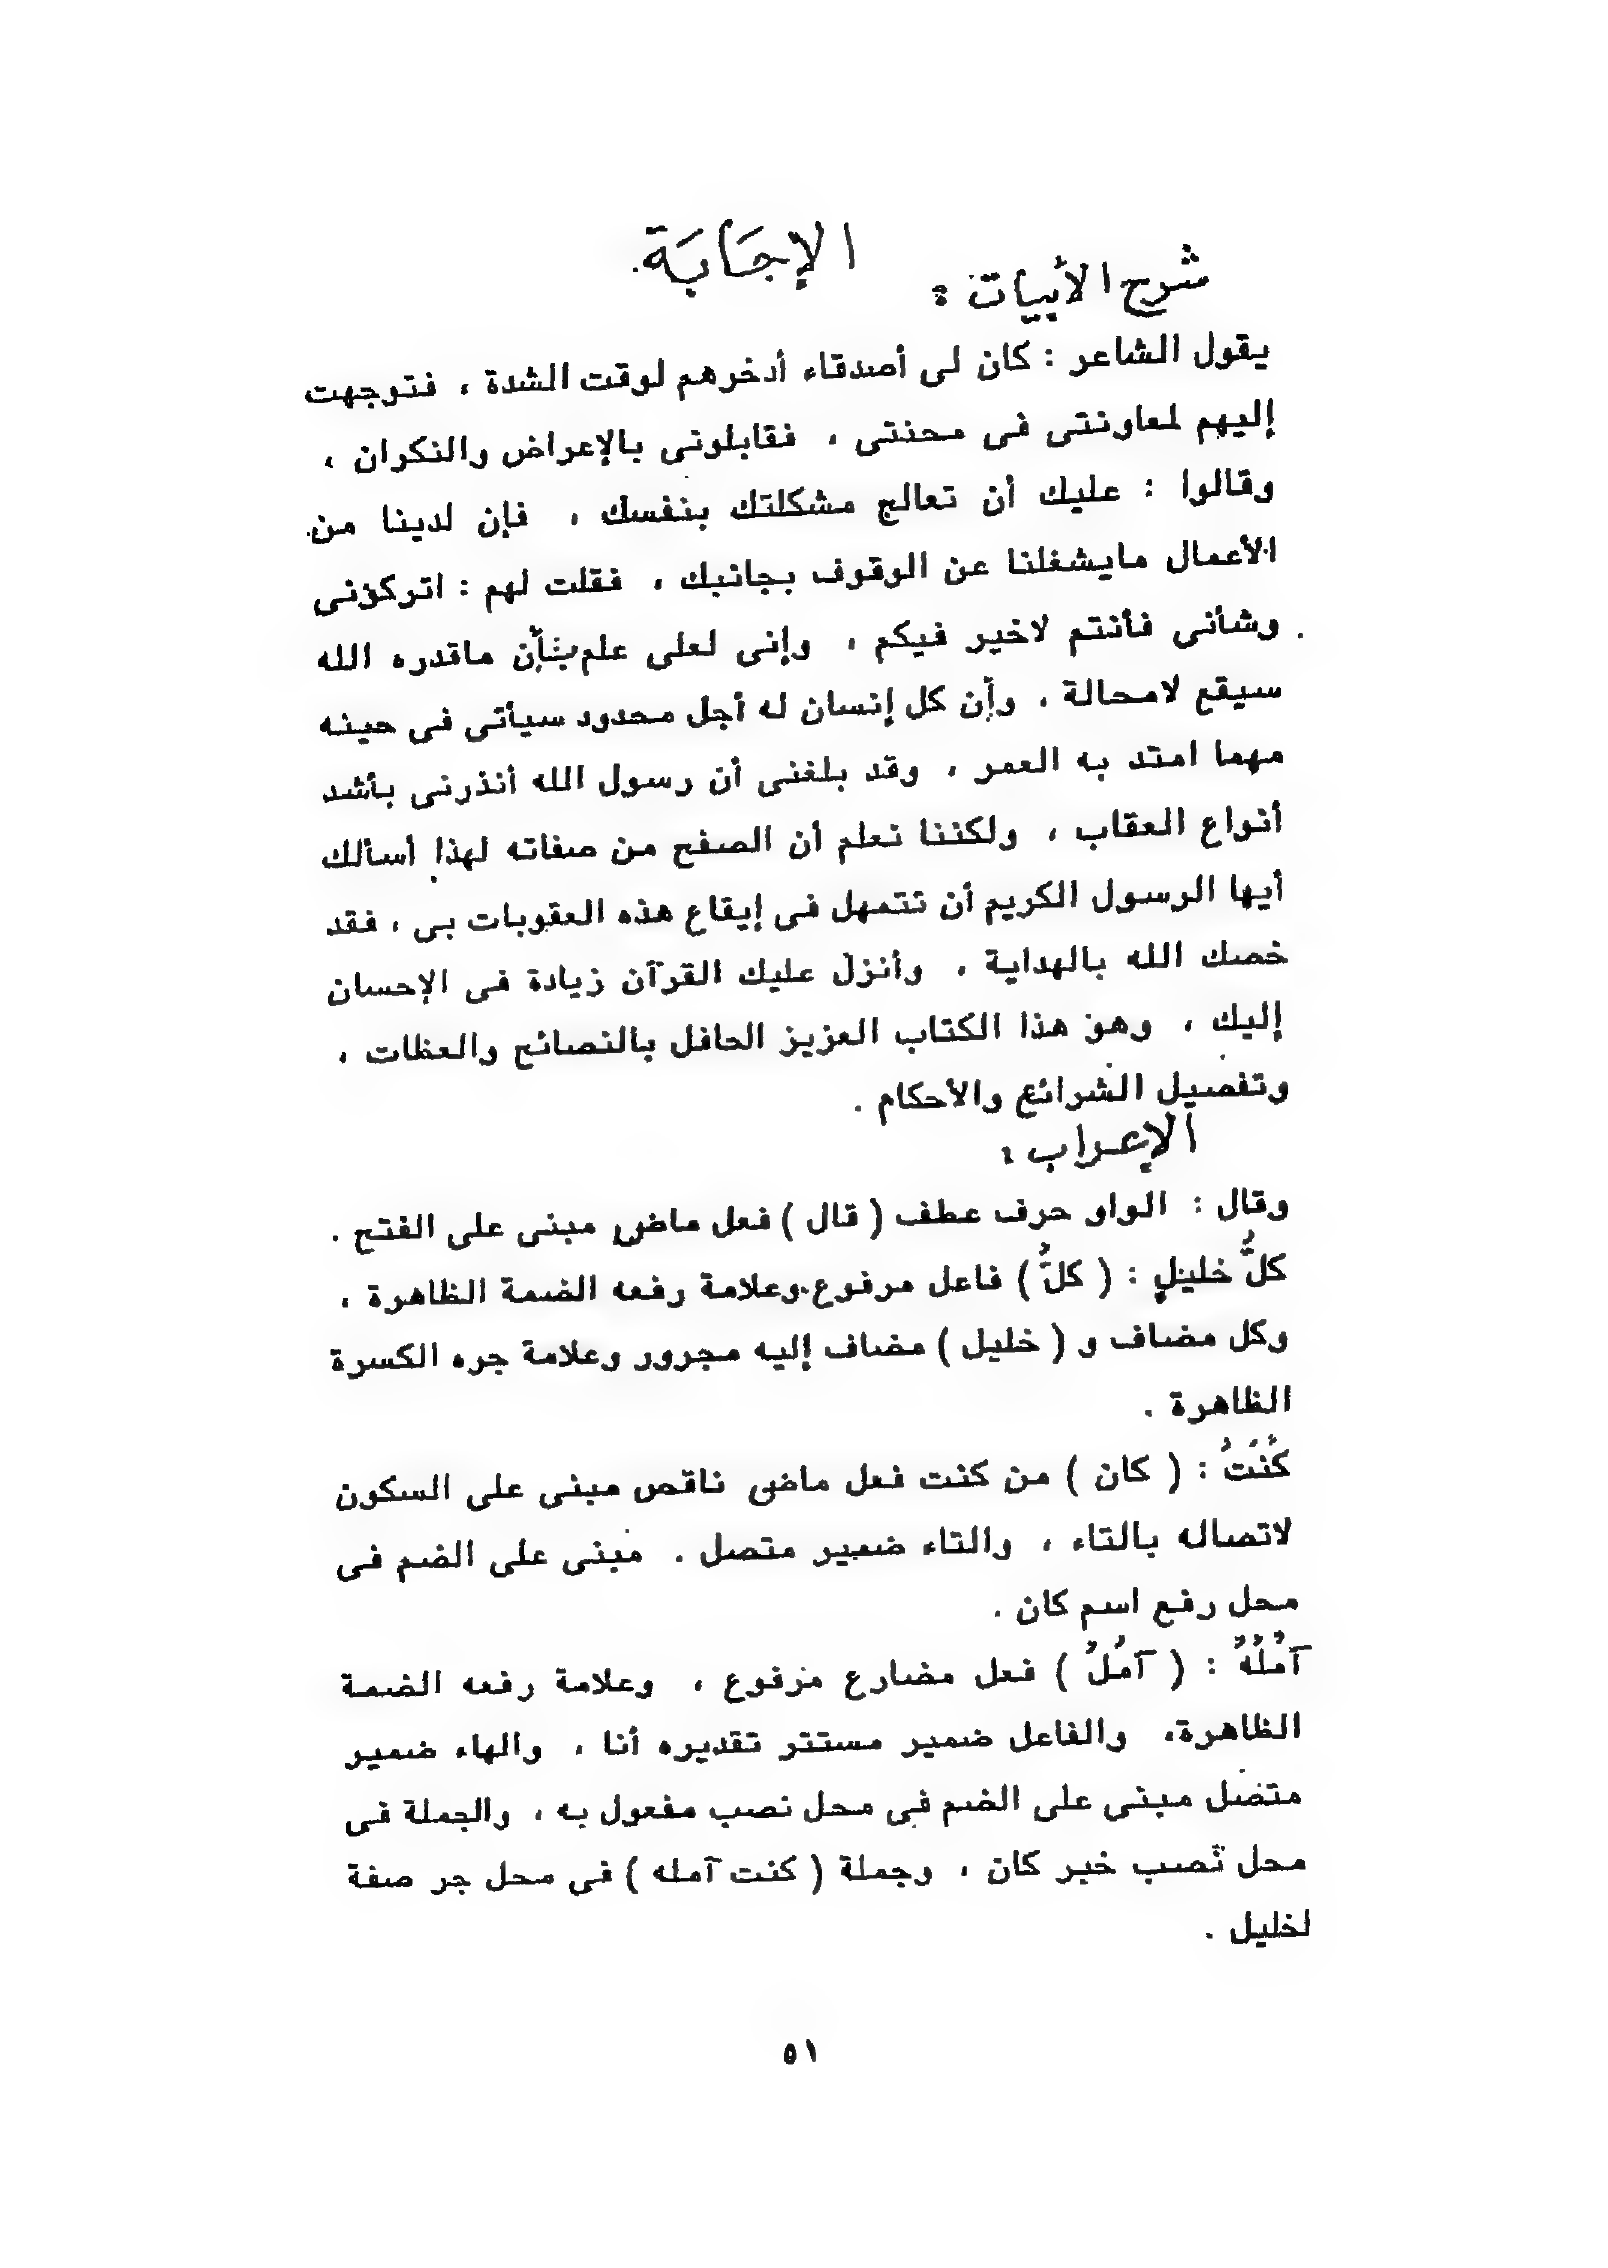 الإجَابَة
شرح الأبيات :
يقول الشاعر : كان لى أصدقاء أدخرهم لوقت الشدة ، فتوجهت
إليهم لمعاونتى فى محنتى ، فقابلونى بالإعراض والنكران ،
وقالوا : عليك أن تعالج مشكلتك بنفسك ، فإن لدينا من
الأعمال مايشغلنا عن الوقوف بجانبك ، فقلت لهم : اتركونى
وشأنى فأنتم لاخير فيكم ، وإنى لعلى علم بأن ماقدره الله
سيقع لامحالة ، وأن كل إنسان له أجل محدود سيأتى فى حينه
مهما امتد به العمر ، وقد بلغنى أن رسول الله أنذرنى بأشد
أنواع العقاب ، ولكننا نعلم أن الصفح من صفاته لهذا أسألك
أيها الرسول الكريم أن تتمهل فى إيقاع هذه العقوبات بى ، فقد
خصك الله بالهداية ، وأنزل عليك القرآن زيادة فى الإحسان
إليك ، وهو هذا الكتاب العزيز الحافل بالنصائح والعظات ،
وتفصيل الشرائع والأحكام .
الإعراب :
وقال : الواو حرف عطف ( قال ) فعل ماضٍ مبنى على الفتح .
كلُّ خليلٍ : ( كلُّ ) فاعل مرفوع وعلامة رفعه الضمة الظاهرة ،
وكل مضاف و ( خليل ) مضاف إليه مجرور وعلامة جره الكسرة
الظاهرة .
كُنْتُ : ( كان ) من كنت فعل ماضى ناقص مبنى على السكون
لاتصاله بالتاء ، والتاء ضمير متصل . مبنى على الضم فى
محل رفع اسم كان .
آمُلُهُ : ( آمُلُ ) فعل مضارع مرفوع ، وعلامة رفعه الضمة
الظاهرة، والفاعل ضمير مستتر تقديره أنا ، والهاء ضمير
متصل مبنى على الضم فى محل نصب مفعول به ، والجملة فى
محل نصب خبر كان ، وجملة ( كنت آمله ) فى محل جر صفة
لخليل .
٥١